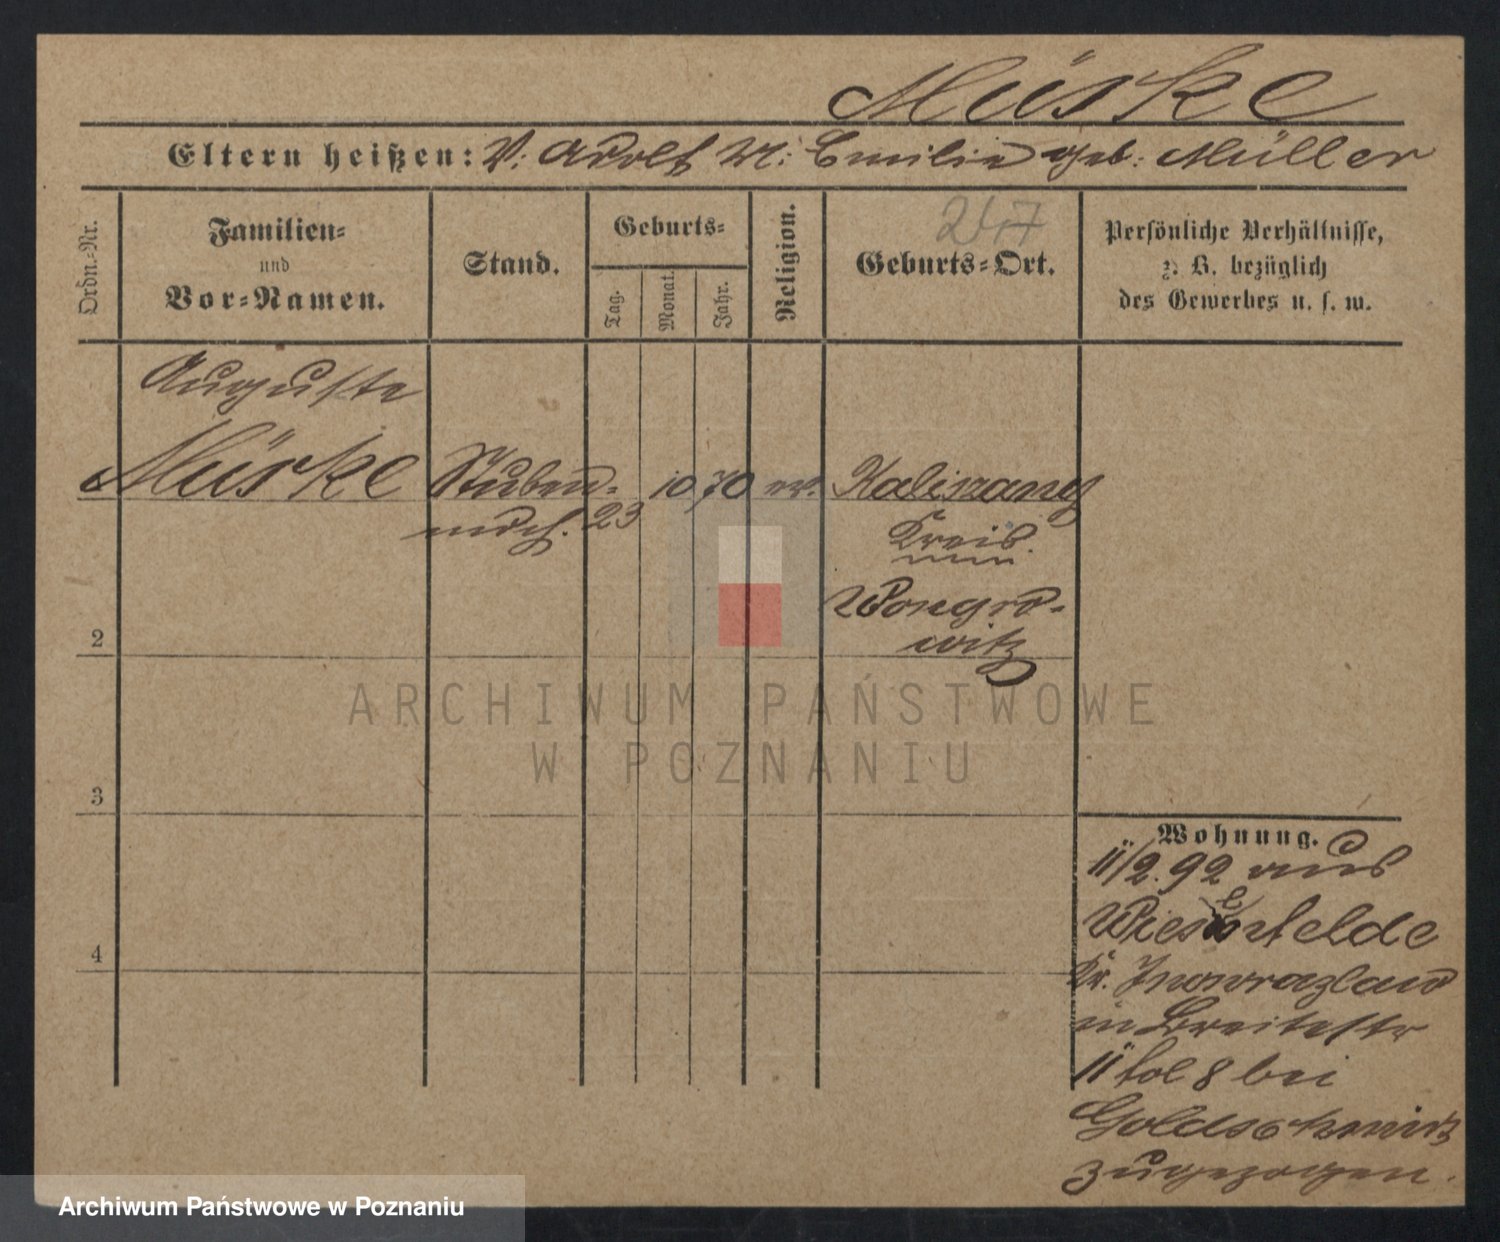 Müske
Eltern heißen: V: Adolf M: Emilie geb: Müller
Ordn.-Nr.
Familien-
und
Vor-Namen.
Stand.
Geburts-
Tag.
Monat.
Jahr.
Religion.
247
Geburts-Ort.
Persönliche Verhältnisse,
z. B. bezüglich
des Gewerbes u. s. w.
Auguste
Müske Stuben- 10 70 ev. Kaliszany
mdch. 23 Kreis
Wongro-
witz
2
3
4
ARCHIWUM PAŃSTWOWE
W POZNANIU
Wohnung.
11/2. 92 aus
Kr. Inowrazlaw
in Breitestr
11 fol 8 bei
Goldschmidt
zugezogen.
Archiwum Państwowe w Poznaniu